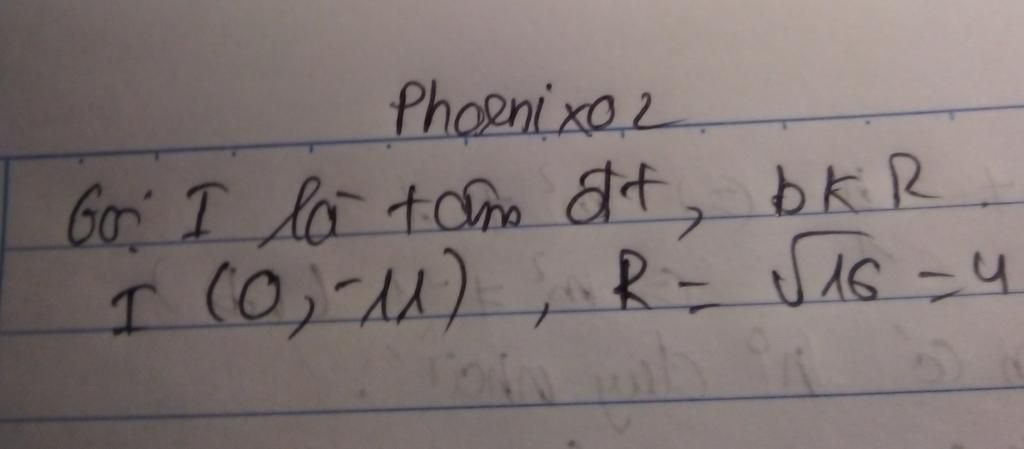 Phoenix02
Gọi I là tâm đt, bk R
I (0; -11), R = √16 = 4